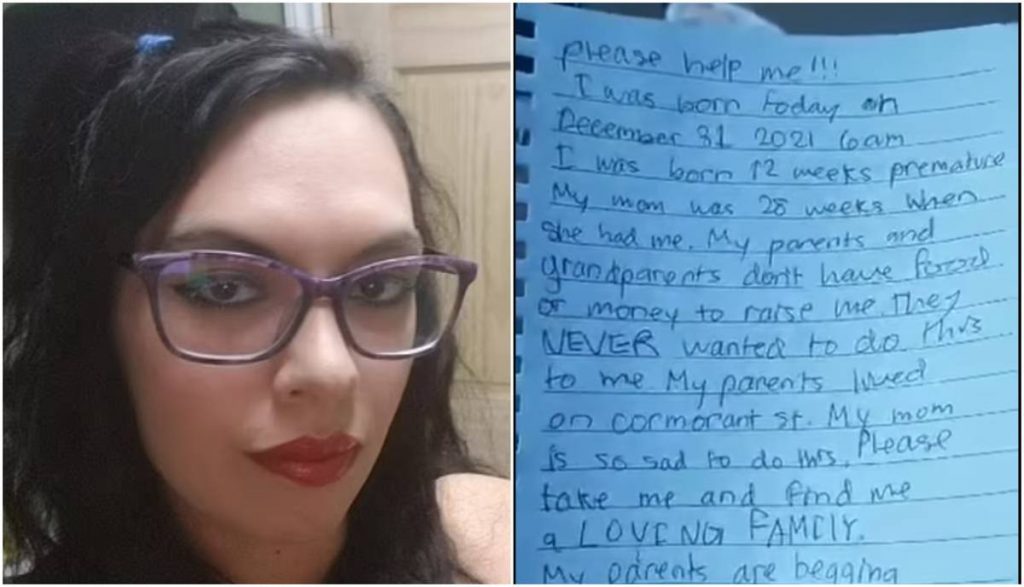 please help me!!!
I was born today on
December 31 2021 6am
I was born 12 weeks premature
My mom was 28 weeks when
she had me. My parents and
grandparents dont have food
or money to raise me They
NEVER wanted to do this
to me My parents lived
on cormorant st. My mom
is so sad to do this. Please
take me and find me
a LOVING FAMILY.
My parents are begging